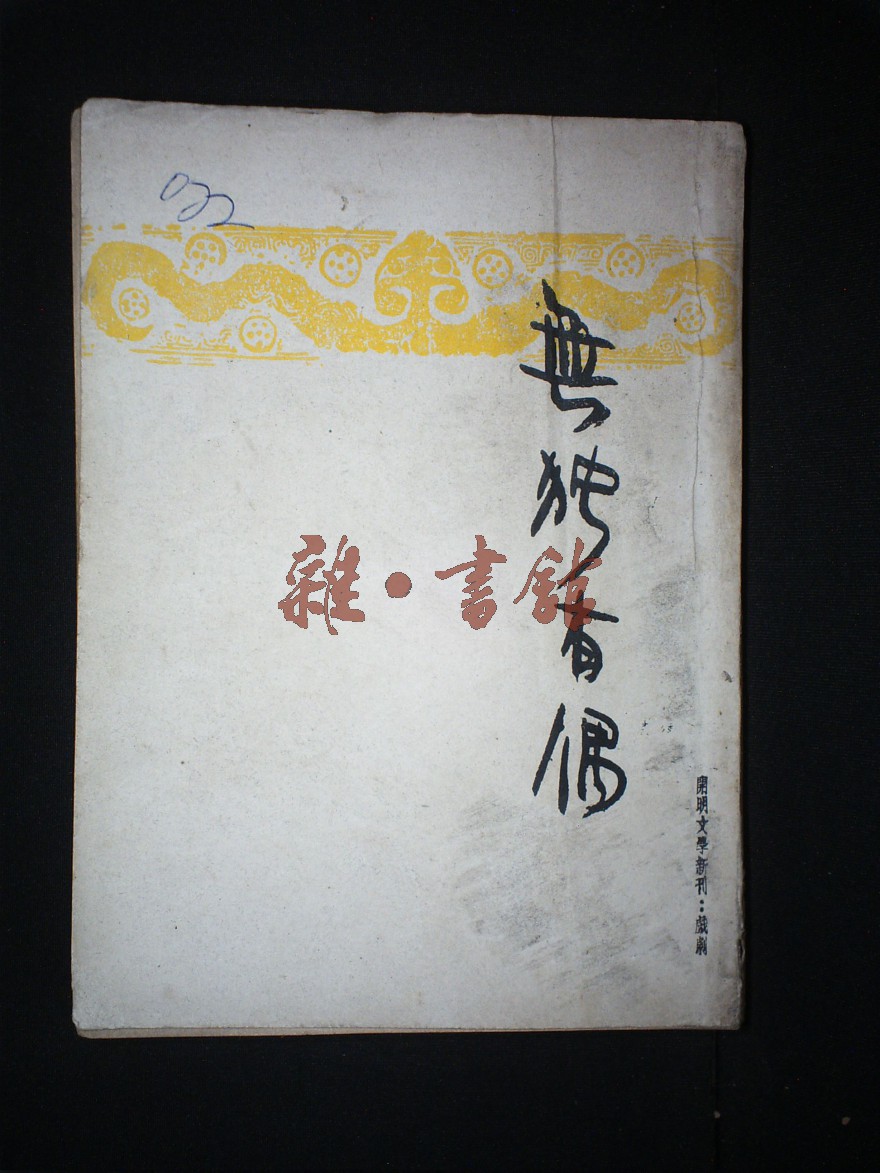 022
無独有偶
雜·書館
開明文學新刊：戲劇